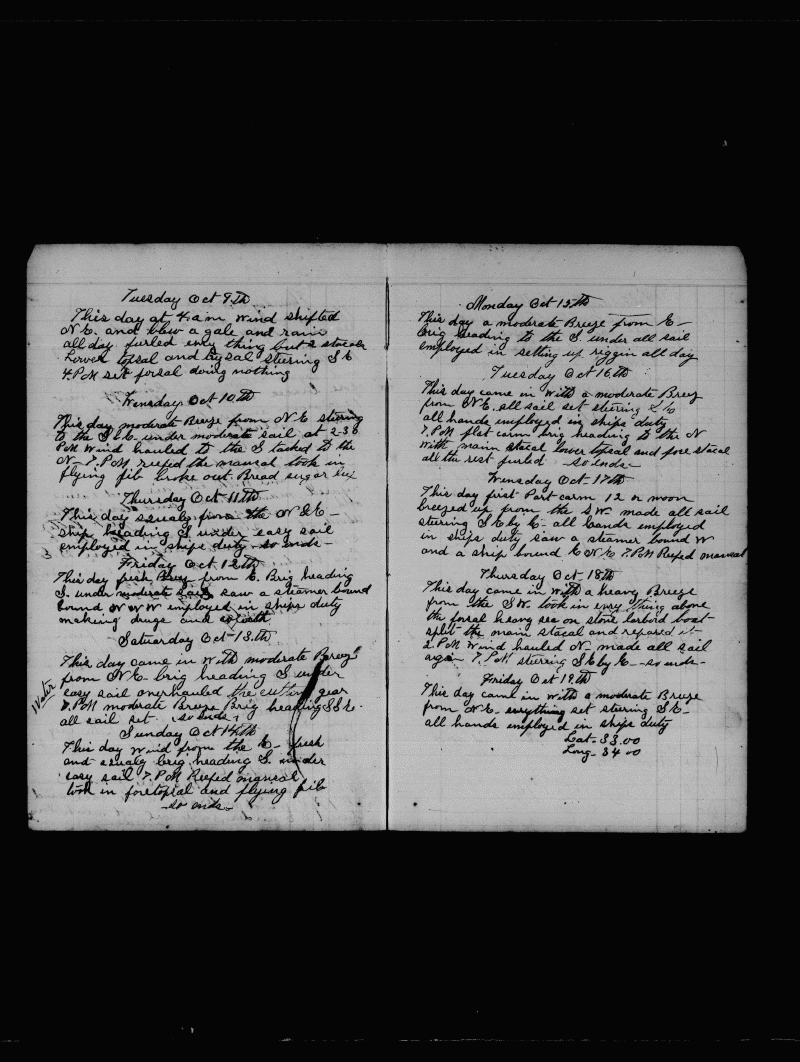 Tuesday Oct 9.Th
This day at 4.a m wind shifted
N E. and blew a gale and rain
all day furled evry thing but 2 stacals
Lower topsal and trysal steering S E
4.P M set forsal doing nothing
Wensday Oct 10.Th
This day moderate Breeze from N E steering
to the S E. under moderate sail at 2-30
P M Wind hauled to the S tacked to the
N- 7.P M reefed the mansal took in
flying jib broke out Bread sugar
Thursday Oct 11.Th
This day squaly from the N & E-
ship heading S under easy sail
employed in ships duty- so ends-
Friday Oct 12.Th
This day fresh Breez from E. Brig heading
S. under moderate sail saw a steamer bound
bound W N W employed in ships duty
making drugs and
Saturday Oct 13.Th
This day came in with moderate Breeze
from N E- brig heading S under
easy sail overhauled the cutting gear
Water
7.P M moderate Breeze Brig heading S S E.
all sail set. so ends,
Sunday Oct 14.Th
This day Wind from the E- fresh
and squaly brig heading S. under
easy sail 7.P M Reefed mansal
took in foretopsal and flying jib
-so ends-
Monday Oct 15.Th
This day a moderate Breeze from E-
brig heading to the S. under all sail
employed in setting up riggin all day
Tuesday Oct 16.Th
This day came in with a moderate Breez
from N E. all sail set steering
all hands employed in ships duty
7.P M flat carm brig heading to the N
with main stacal lower topsal and fore stacal
all the rest furled - so ends-
Wensday Oct 17.Th
This day first Part carm 12 or noon
breezed up from the S W. made all sail
steering S E by E- all hands employed
in ships duty saw a steamer bound W
and a ship bound E N E 7.P M Reefed mansal
Thursday Oct 18.Th
This day came in with a heavy Breeze
from the S W. took in evry thing above
the forsal heavy sea on stove larbord boat
split the main stacal and repared it-
2.P M Wind hauled N. made all sail
again 7.P M steering S E by E- so ends-
Friday Oct 19.Th
This day came in with a moderate Breeze
from N E- evrything set steering S E-
all hands employed in ships duty
Lat- 33.00
Long- 34 00